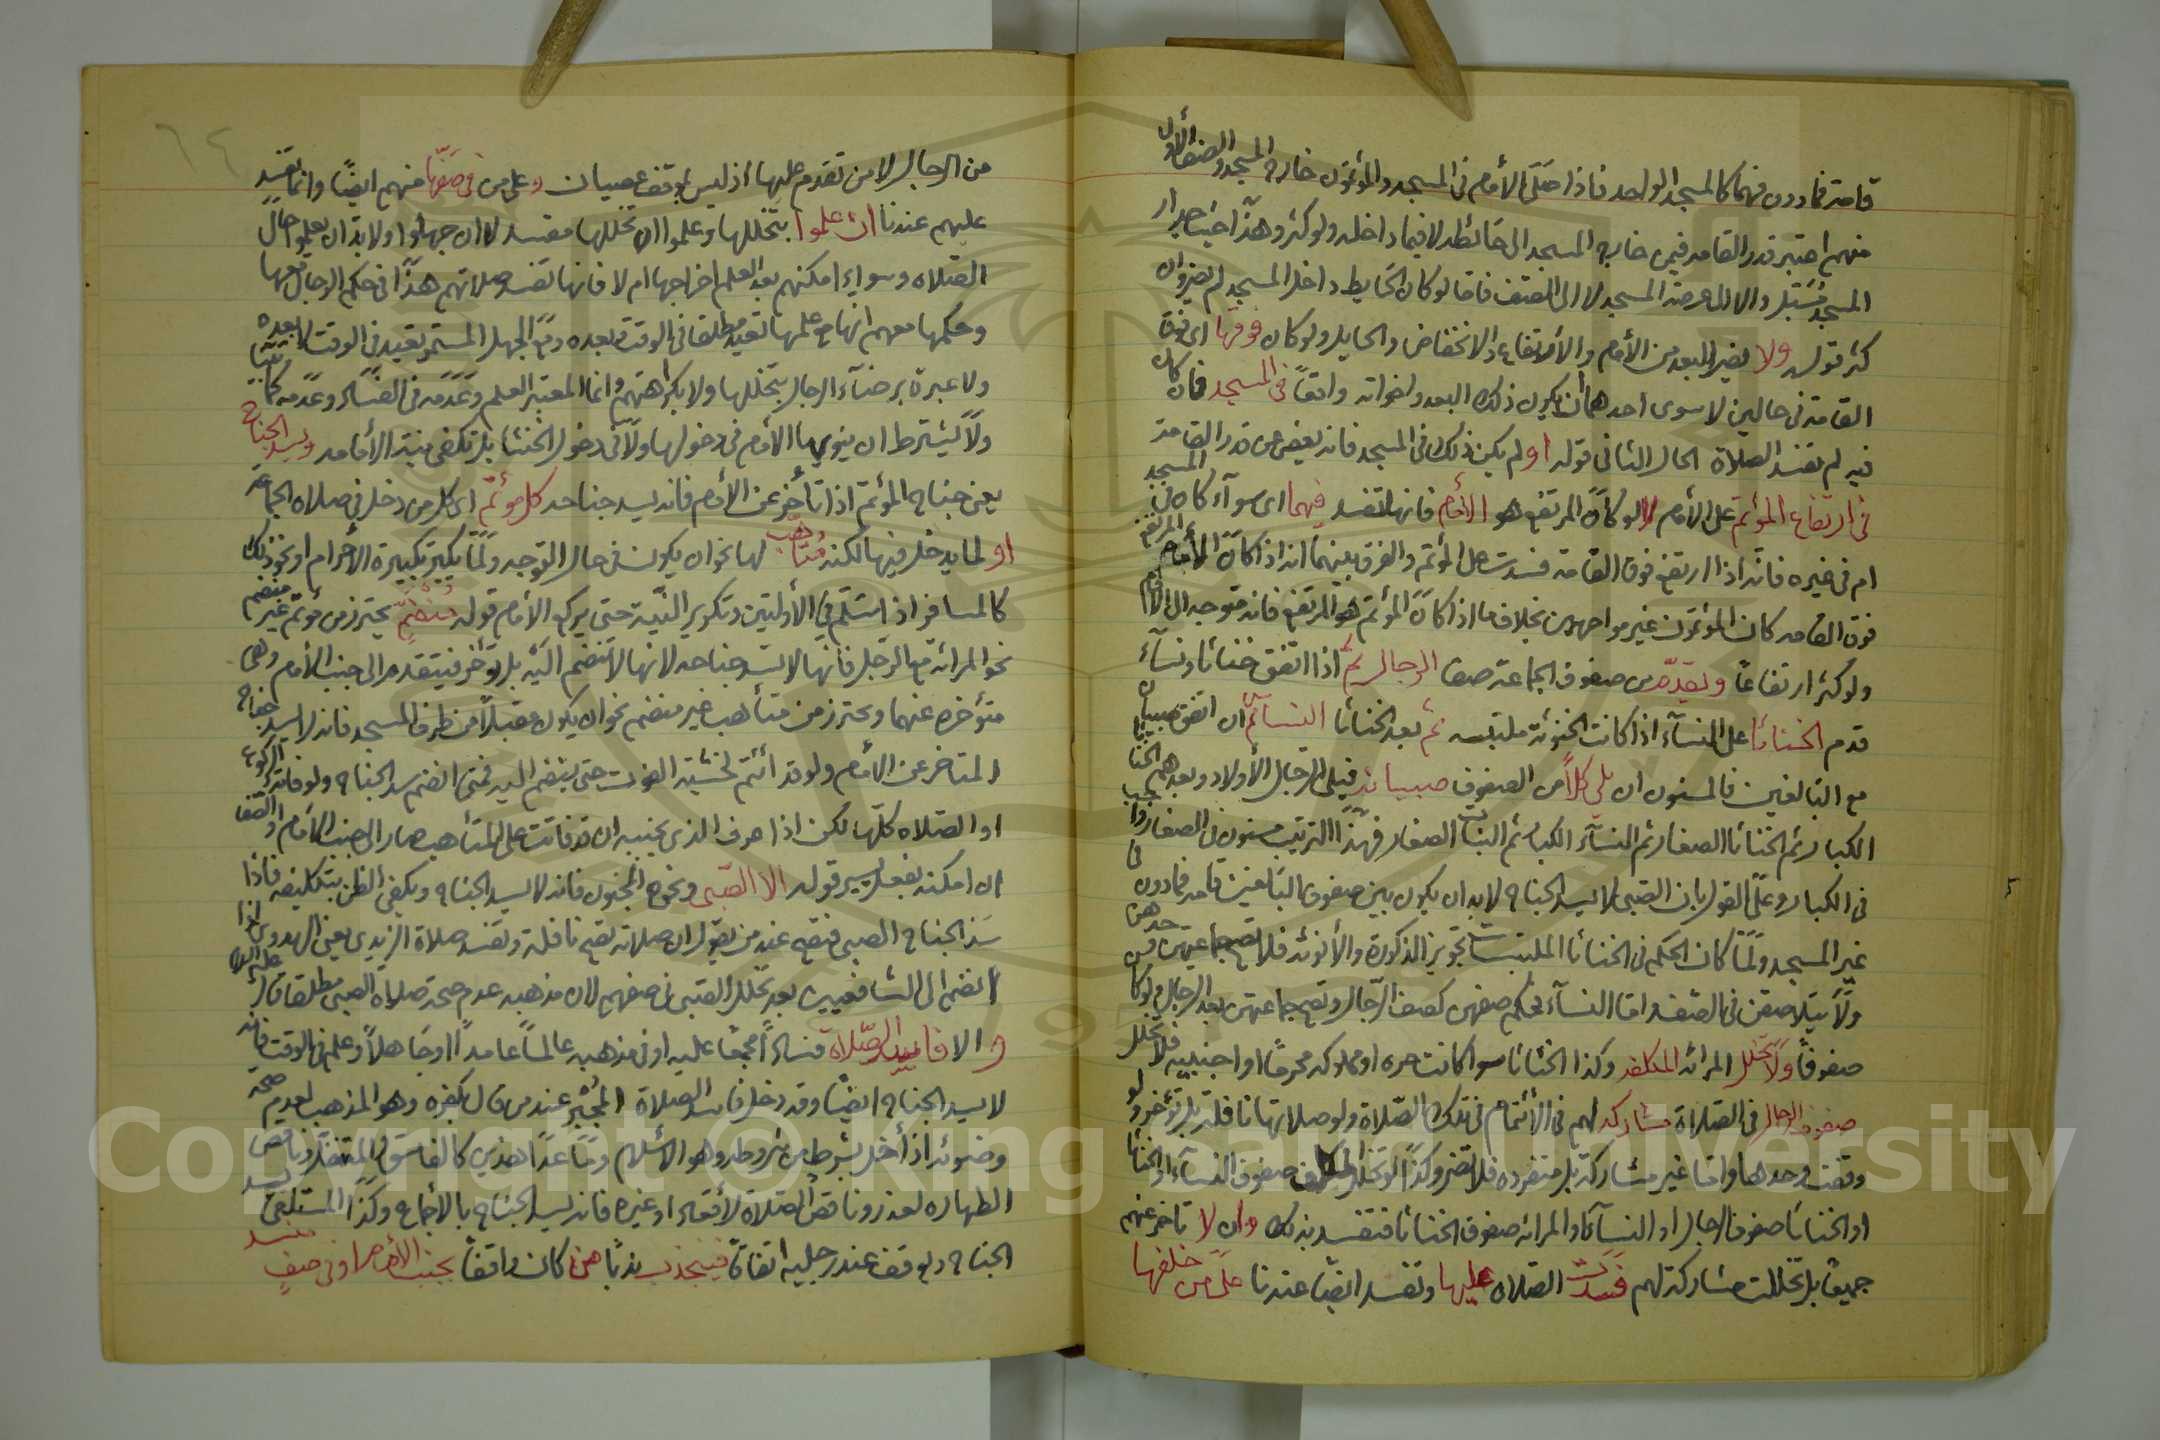 قامة فما دون فهما كالمسجد الواحد فاذا صلى الأمام في المسجد والمؤتمون خارج المسجد والصف الأول
منهم اعتبر قدر القامه فيمن خارج المسجد الى حائطه لا فيما داخله ولو كثر وهذا حيث جدار
المسجد مُسَبَّل والا فالى عرصة المسجد لا الى السقف فاما لو كان الحايط داخل المسجد لم يضر وان
كثر قوله ولا يضر البعد من الأمام والأرتفاع والانخفاض والحايل ولو كان فوقها اى فوق
القامة في حالين لا سوى احدهما ان يكون ذلك البعد واخواته واقعاً في المسجد فان كان
فيه لم تفسد الصلاة الحال الثاني قوله او لم يكن ذلك في المسجد فانه يعفى عن قدر القامة
في ارتفاع المؤتم على الأمام لا لو كان المرتفع هو الأمام فانها تفسد فيهما اى سوآء كان في المسجد
ام في غيره فانه اذا ارتفع فوق القامة فسدت على المؤتم والفرق بينهما انه اذا كان الأمام المرتفع
فوق القامه كان المؤتمون غير مواجهين بخلاف ما اذا كان المؤتم هو المرتفع فانه متوجه الى الأمام
ولو كثر ارتفاعاً ويقدّم من صفوف الجماعة صف الرجال ثم اذا اتفق خناثا ونسآء
قدم الخناثا على النسآء اذا كانت الخنوثة ملتبسه ثم بعد الخناثا النسآء ثم ان اتفق صبيان
مع البالغين فالمسنون ان يلي كلاً من الصفوف صبيانه فيلي الرجال الأولاد وبعدهم الخناثا
الكبار ثم الخناثا الصغار ثم النسآء الكبار ثم البنات الصغار فهذا الترتيب مسنون في الصغار واجب
في الكبار وعلى القول بان الصبي لا يسد الجناح لابد ان يكون بين صفوف البالغين قامه فما دون في
غير المسجد ولما كان الحكم في الخناثا الملتبسات تجويز الذكورة والأنوثه فلا تصح جماعتهن وحدهن
ولا يتلاصقن في الصف اما النسآء فحكم صفهن كصف الرجال وتصح جماعتهن بعد الرجال ولو كانوا
صفوفاً ولا تخلل المرائه المكلفه وكذا الخناثا سوا كانت حره او مملوكه محرماً او اجنبيه فلا تخلل
صفوف الرجال في الصلاة مشاركه لهم في الأئتمام في تلك الصلاة ولو صلاتها نافلة بل تؤخر ولو
وقفت وحدها واما غير مشاركة بل منفرده فلا تضر وكذا لو تخلل المكلف صفوف النسآء او الخناثا
او الخناثا صفوف الرجال او النسآء او المرائه صفوف الخناثا فتفسد بذلك وان لا تاخر عنهم
جميعاً بل تخللت مشاركة لهم فسدت الصلاه عليها وتفسد ايضاً عندنا على من خلفها
من الرجال لا من تقدم عليها اذ ليس بموقف عصيان وعلى من في صفها منهم ايضاً وانما تفسد
عليهم عندنا ان علموا بتخللها وعلموا ان تخللها مفسد لا ان جهلوا ولا بد ان يعلموا حال
الصلاه وسواء امكنهم بعد العلم اخراجها ام لا فانها تفسد صلاتهم هذا في حكم الرجال معها
وحكمها معهم انها مع علمها تعيد مطلقا في الوقت وبعده ومع الجهل المستمر تعيد في الوقت لا بعده
ولا عبرة برضآء الرجال بتخللها ولا بكراهتهم وانما المعتبر العلم وعدمه في الفساد وعدمه كما بيّنّا
ولا يشترط ان ينويها الأمام في دخولها ولا في دخول الخنثا بل تكفي نية الأمامه ويسد الجناح
يعني جناح المؤتم اذا تأخر عن الأمام فانه يسد جناحه كل مؤتم اى كل من دخل في صلاة الجماعه
او لما يدخل فيها لكنه متأهب لها نحو ان يكون في حال التوجه ولما يكبر تكبيرة الأحرام او نحو ذلك
كالمسافر اذا سلم في الأولتين وتكوير النية حتى يركع الأمام قوله منضم يحترز من مؤتم غير منضم
نحو المرائة مع الرجل فانها لا تسد جناحه لانها لا تنضم اليه بل تؤخر فيتقدم الى جنب الأمام وهي
متؤخره عنهما ويحترز من متأهب غير منضم نحو ان يكون مقبلاً من طرف المسجد فانه لا يسد جناح
المتاخر عن الأمام ولو قد ائتم لخشية الفوت حتى ينضم اليه فمتى انضم سد الجناح ولو فاته الركوع
او الصلاه كلها لكن اذا عرف الذي بجنبه ان قد فاتت على المتأهب صار الى جنب الأمام او الصف
ان امكنه بفعل يسير قوله الا الصبي ونحوه المجنون فانه لا يسد الجناح ويكفي الظن بتكليفه فاذا
سد الجناح الصبي فتصح عند من يقول ان صلاته تصح نافلة وتفسد صلاة الزيدي يعني الهدوي اذا
انضم الى الشافعيين بعد تخلل الصبي في صفهم لان مذهبه عدم صحة صلاة الصبي مطلقا
و الا فاسد الصلاة فساداً مجمعا عليه او في مذهبه عالماً عامداً او جاهلاً وعلم في الوقت فانه
لا يسد الجناح ايضاً وقد دخل فاسد الصلاة المجبر عند من قال بكفره وهو المذهب لعدم صحة
وضوئه اذ أخل بشرط من شروطه وهو الأسلام وما عدا هذين كالفاسق والمتنفل وناقص
الطهاره لعذر وناقص الصلاة لأقعاد او غيره فانه يسد الجناح بالأجماع وكذا المستلقي يسد
الجناح ويوقف عند رجليه اتفاقاً فينجذب ندباً من كان واقفاً بجنب الأمام او في صف منسد